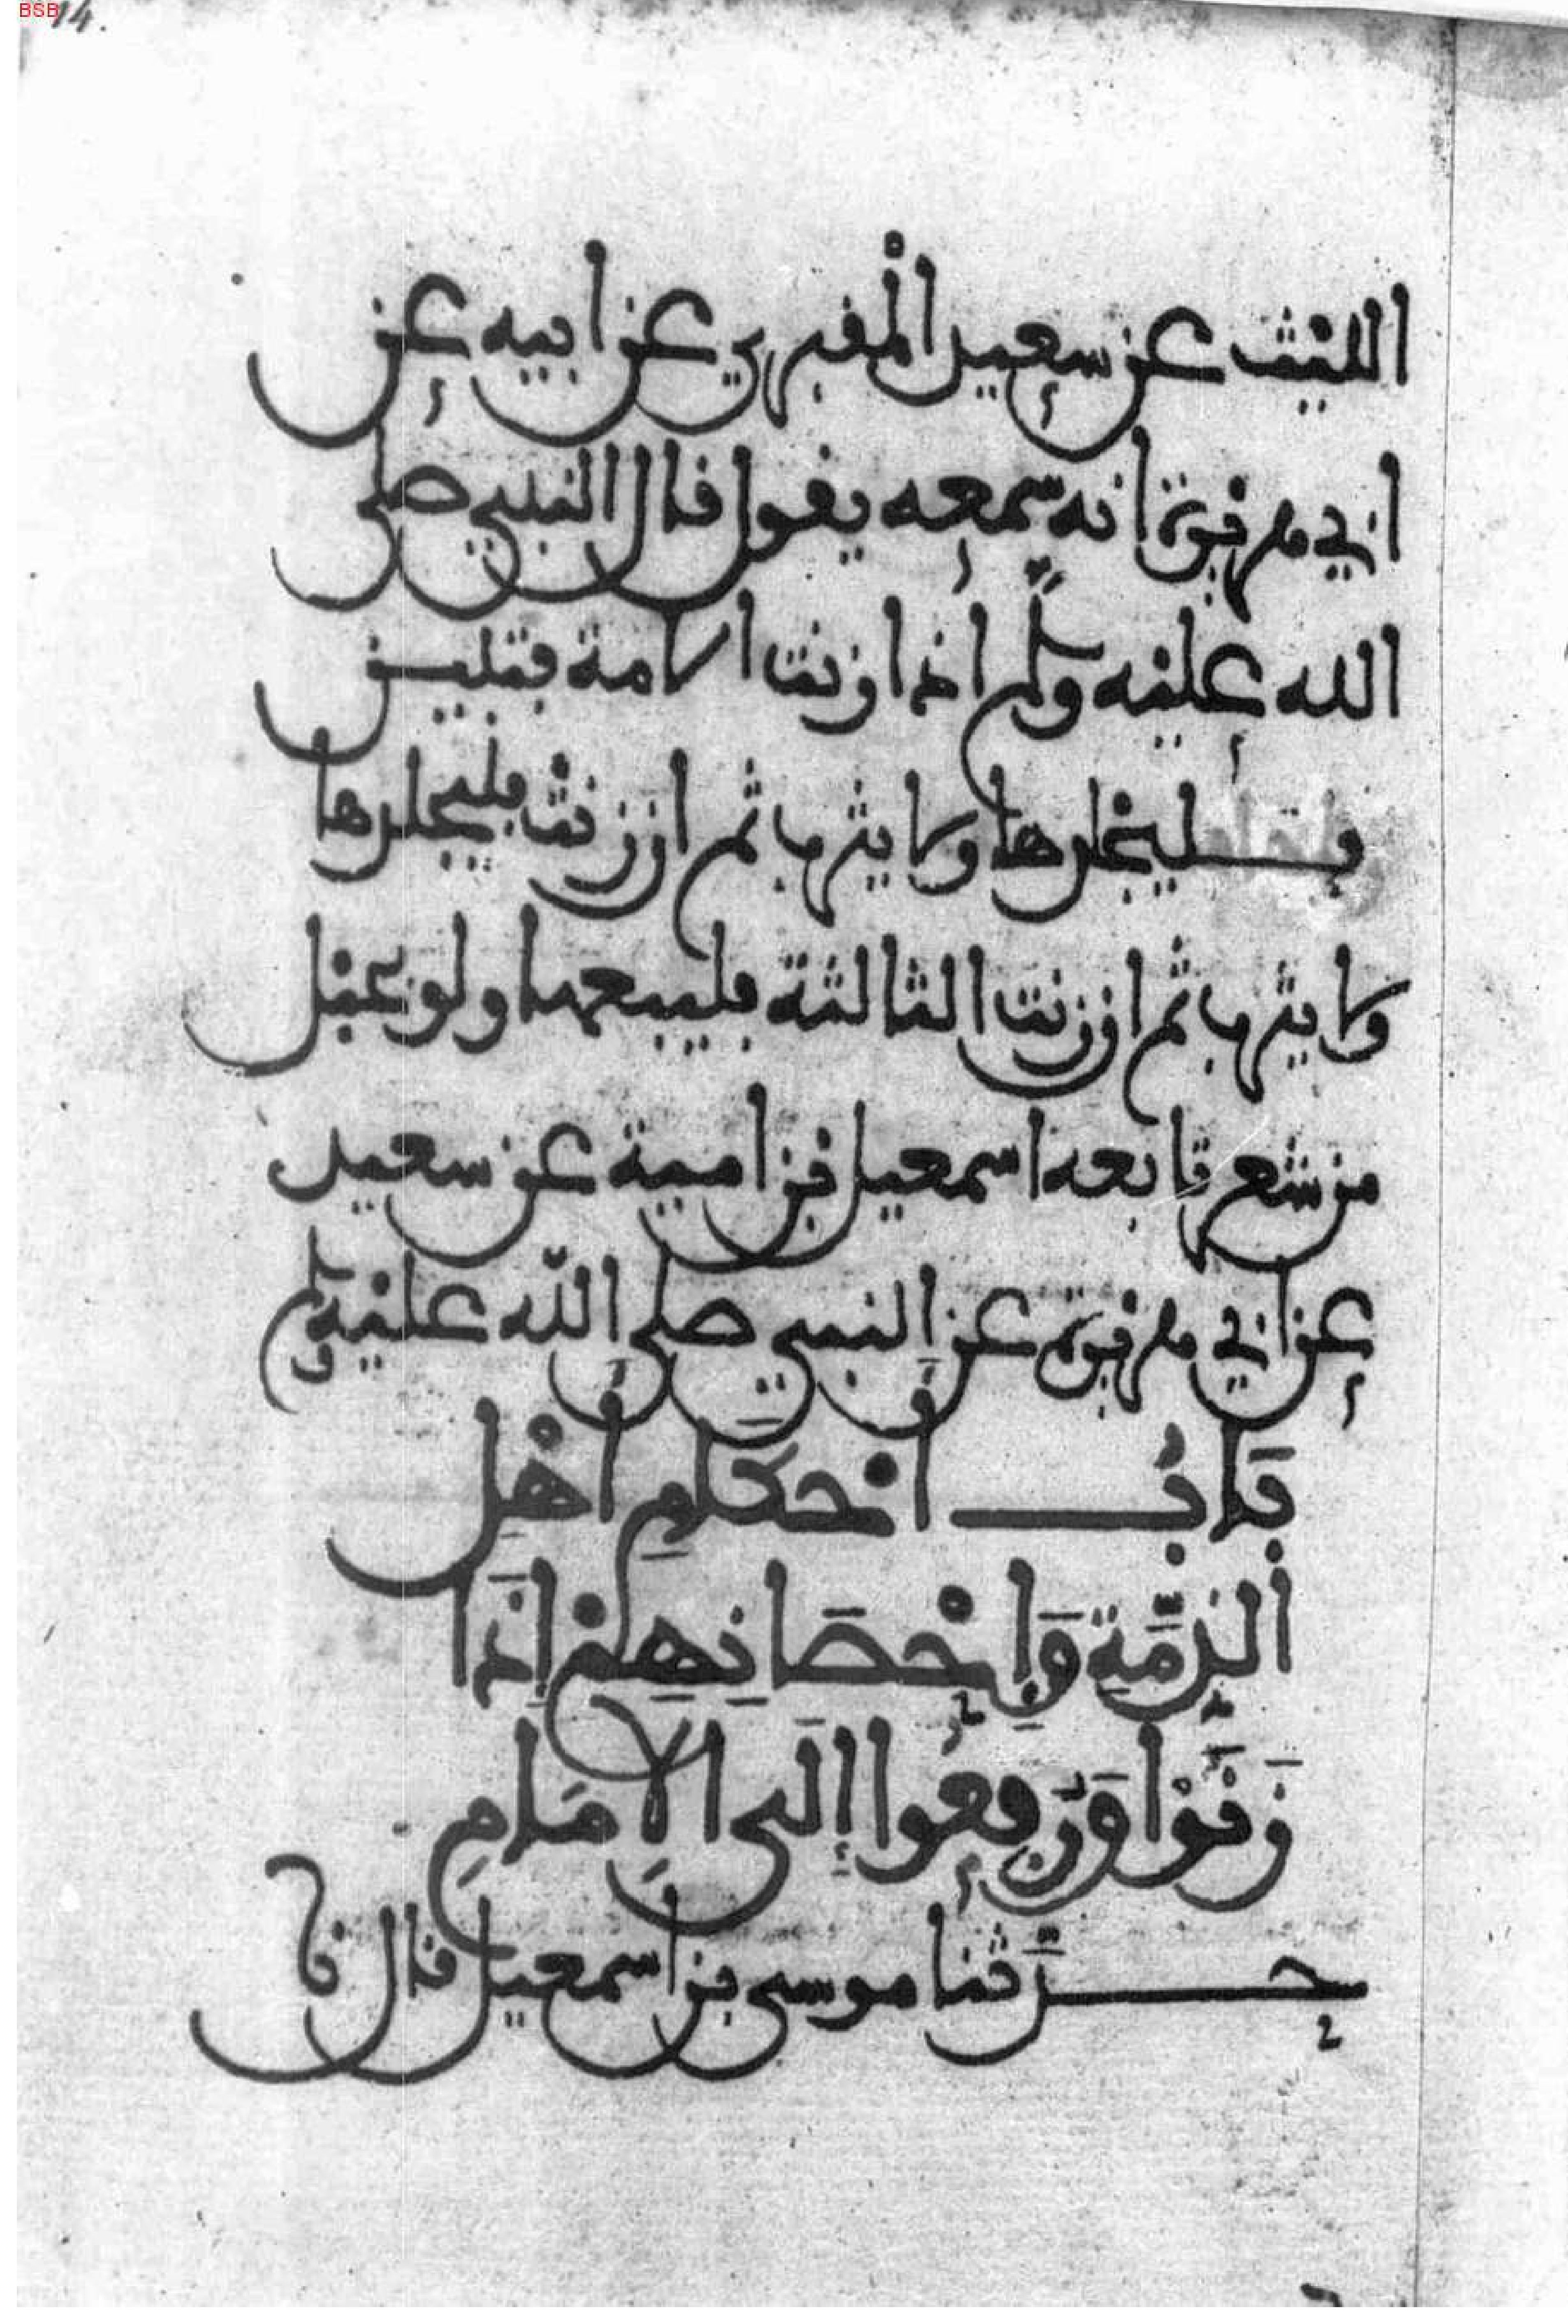 BSB 14.
الليْث عن سعيد المْقبري عن ابيه عن
ابي هريْرة انه سمعه يقول قال النبي صلى
الله عليْه وسلم اذا زنت الامة فتبين
فليجْلدها ولا يثرب ثم ان زنتْ فليجلدها
ولا يثرب ثم ان زنت الثالثة فليبعها ولو بحبْل
من شعر تابعه اسمعيل بْن امية عن سعيد
عن ابي هريْرة عن النبي صلى اللّه عليْه وسلم
بَابُ أَحْكَامِ أَهْلِ
الذِّمَّةِ وَإِحْصَانِهِمْ إِذَا
زَنَوْا وَرُفِعُوا إِلَى الِامَامِ
حدَّثنا موسى بن اسمعيل قال نا